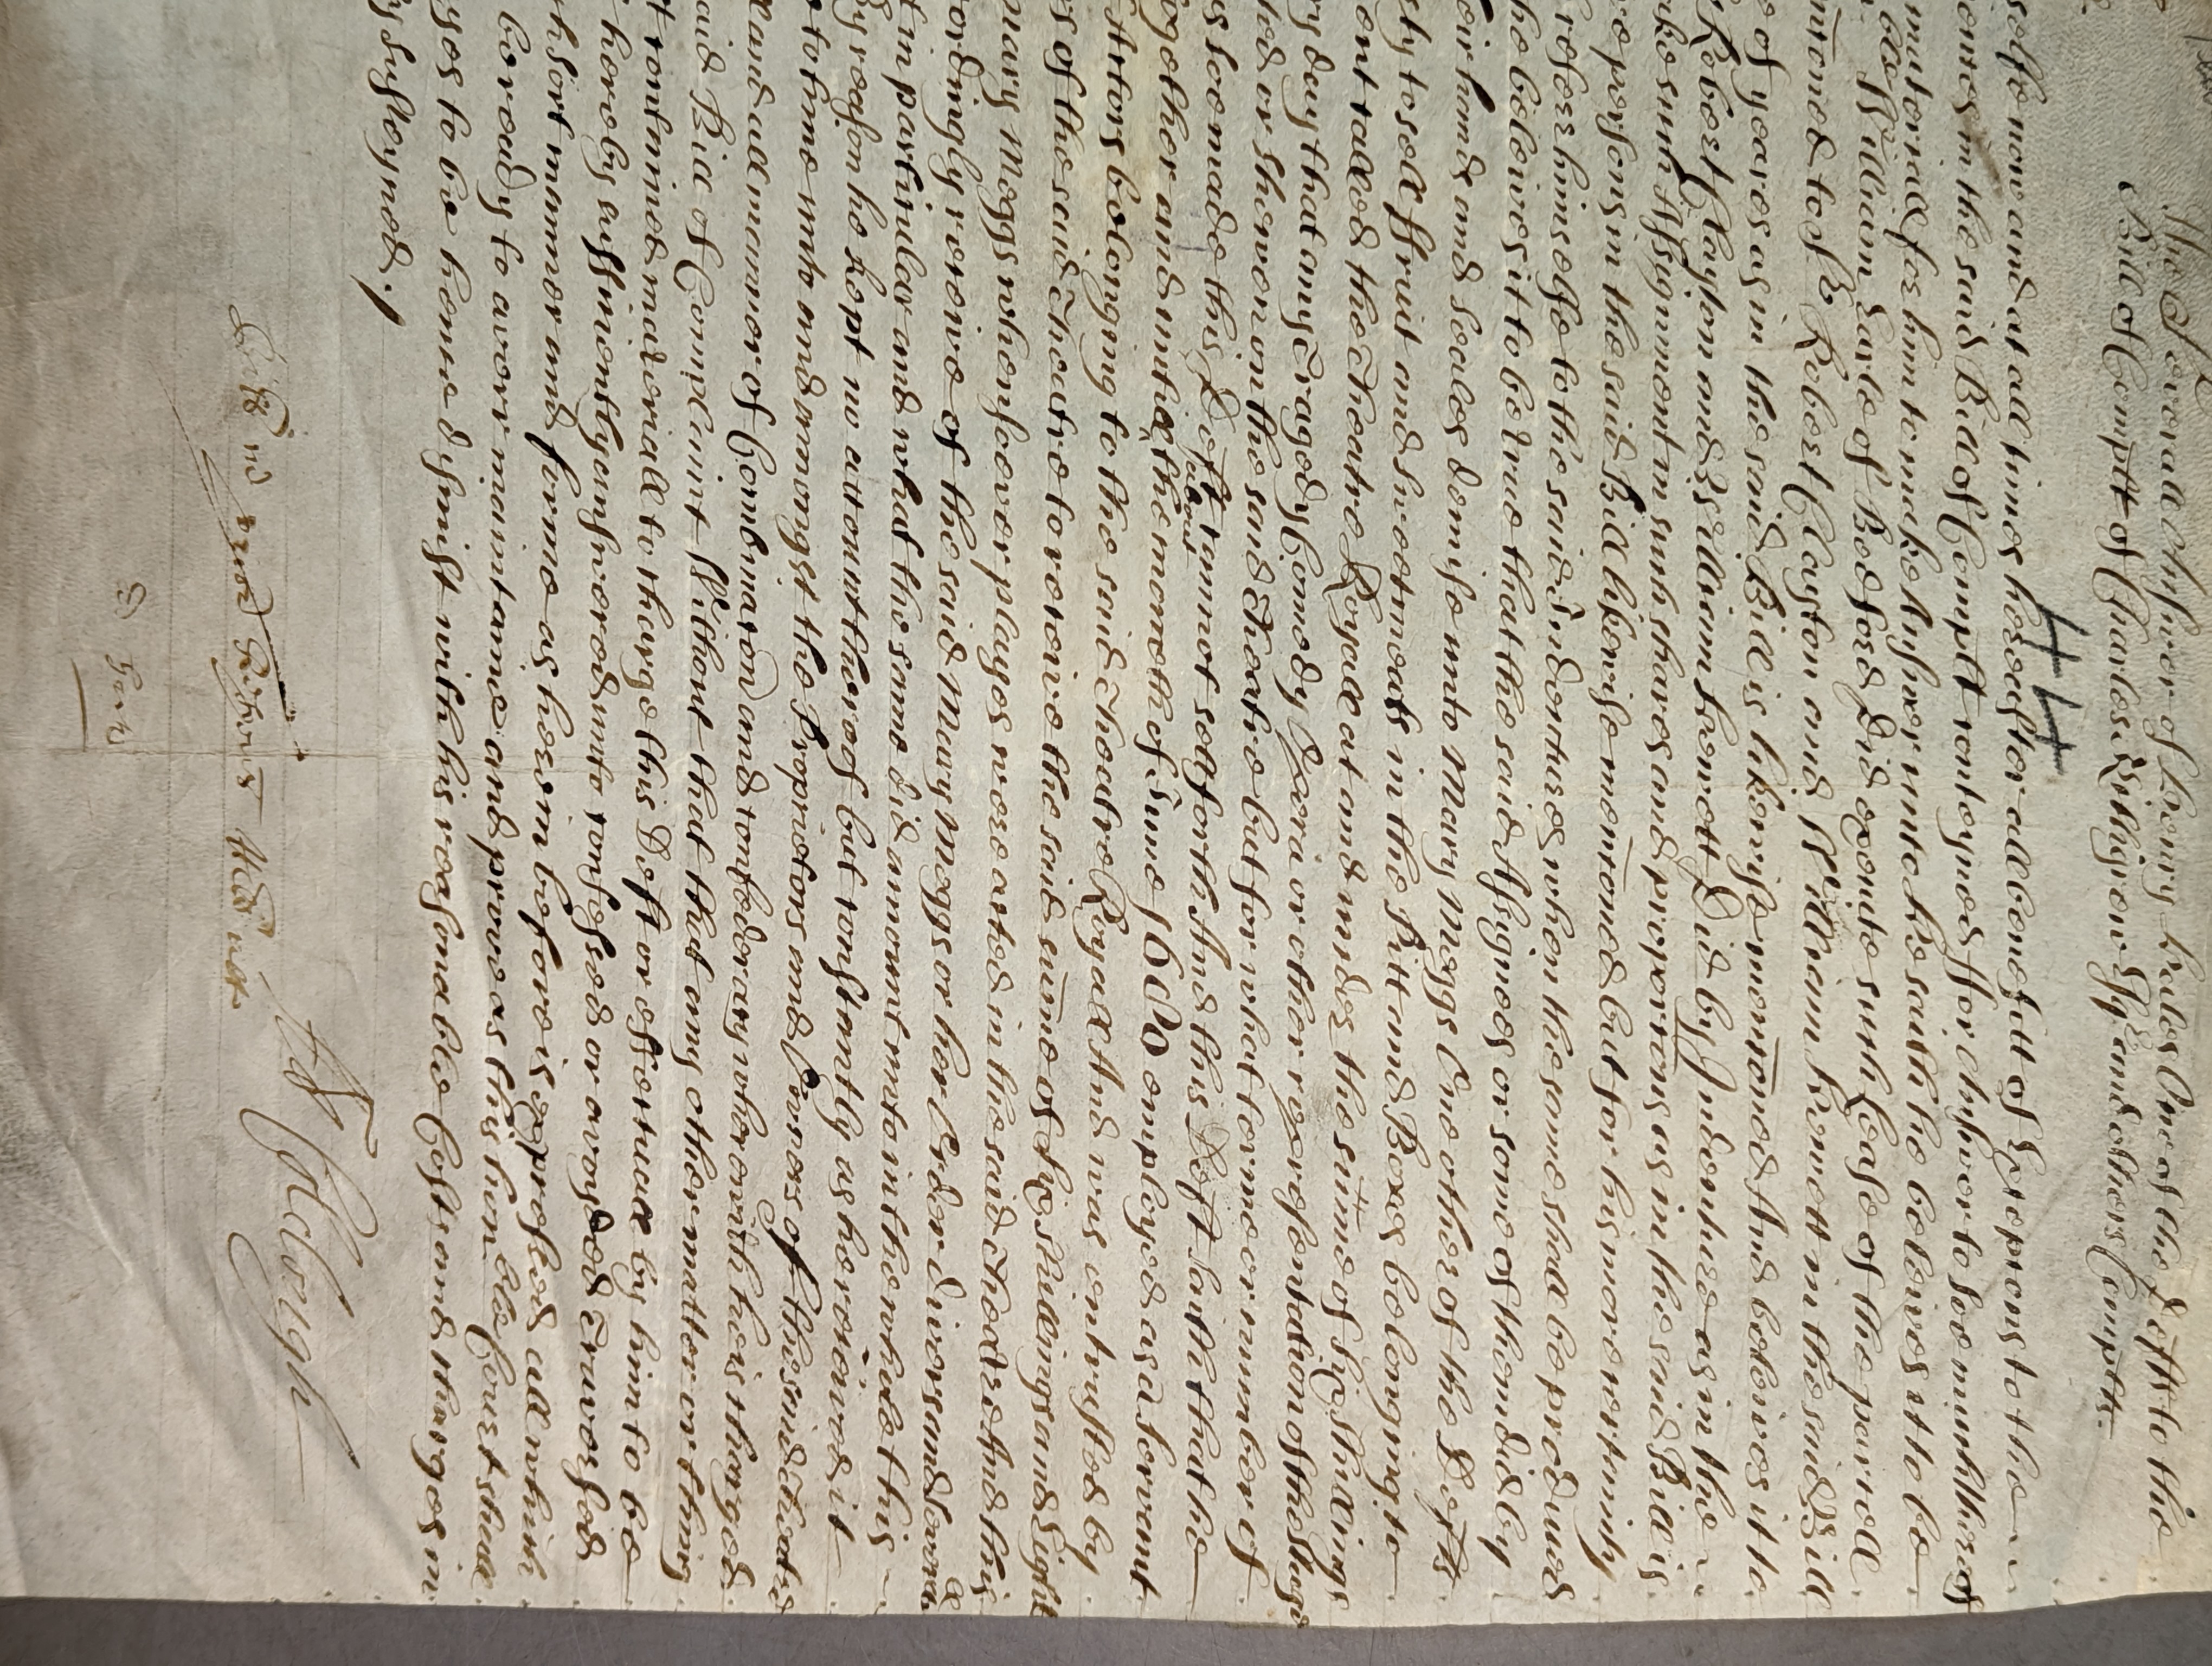 The Severall Answer of Henry Hailes One of the Defts to the
Bill of Complt of Charles Killigrew Esqr and others Complts.
44
selfe now and at all times hereafter all benefitt of Excepcons to the
in the said Bill of Complt conteyned ffor Answer to soe much thereof
materiall for him to make Answer unto He saith he beleives it to be
William Earle of Bedford Did execute such Lease of the parcell
menconed to Sr Robert Clayton and William Hewett in the said Bill
of yeares as in the said Bill is likewise menconed And beleives it to
Robert Clayton and William Hewett Did by Indenture as in the
such Assignment in such shares and proporcons as in the said Bill is
persons in the said Bill likewise menconed but for his more certainty
referr himselfe to the said Indentures when the same shall be produced
he beleives it to be true that the said Assignees or some of them did by
their hands and seales demise unto Mary Meggs One other of the Defts
to sell ffruit and sweetmeats in the Pitt and Boxes belonging to
called the Theatre Royall at and under the sume of six Shillings
day that any Tragedy Comedy Opera or other representation of the Stage
or shewen on the said Theatre but for what terme or number of
soe made this Deft cannot sett forth And this Deft saith that he
about
together and untill the moneth of June 1680 employed as a servant
Actors belonging to the said Theatre Royall And was entrusted by
of the said Theatre to receive the said sume of six shillings and Eight
Mary Meggs whensoever playes were acted in the said Theatre And this
accordingly receive of the said Mary Meggs or her Order divers and severall
in particular and what the same did amount unto in the whole this
by reason he kept no account thereof but constantly as he received it
to time unto and amongst the Proprietors and Owners of the said Theatre
and all manner of Combinacon and confederacy wherewith he is charged
said Bill of Complaint Without that that any other matter or thing
conteined materiall to charge this Deft or effectuall by him to be
hereby sufficiently answered unto confessed or avoyded Traversed
such sort manner and forme as herein before is expressed all which
ready to averr maintaine and prove as this honoble Court shall
to be hence dismist with his reasonable Costs and charges in
susteyned./
W Clough